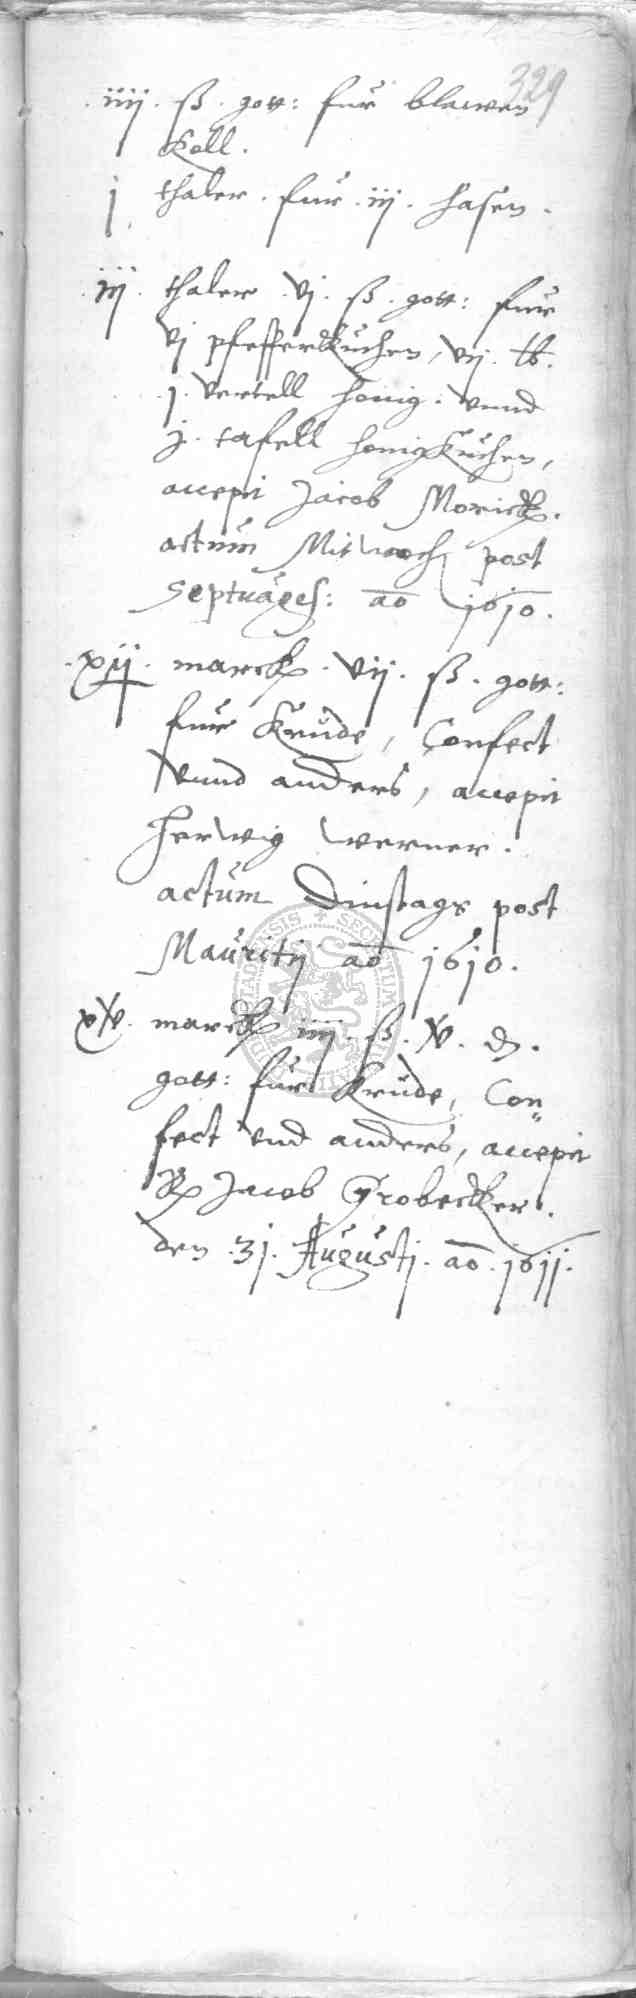 329
.iiij. ß. gott: fur blawen
Koll.
j thaler. fur .iij. hasen.
.iij. thaler .vj. ß. gott: fur
vj pfefferkuchen, vij. lb.
.j. vertell honig. vnnd
j. tafell honigkuchen,
accepit Jacob Morick.
actum Mitwoch post
Septuages: ao 1610.
.xij. marck. vij. ß. gott:
fur Krude, Confect
vnnd anders, accepit
Herwig Werner.
actum Dinstags post
Mauritij ao 1610.
xv. marck iiij. ß. v. d.
gott: fur Krude, Con„
fect vnd anders, accepit
Jacob Grobecker.
den .31. Augusti. ao. 1611.